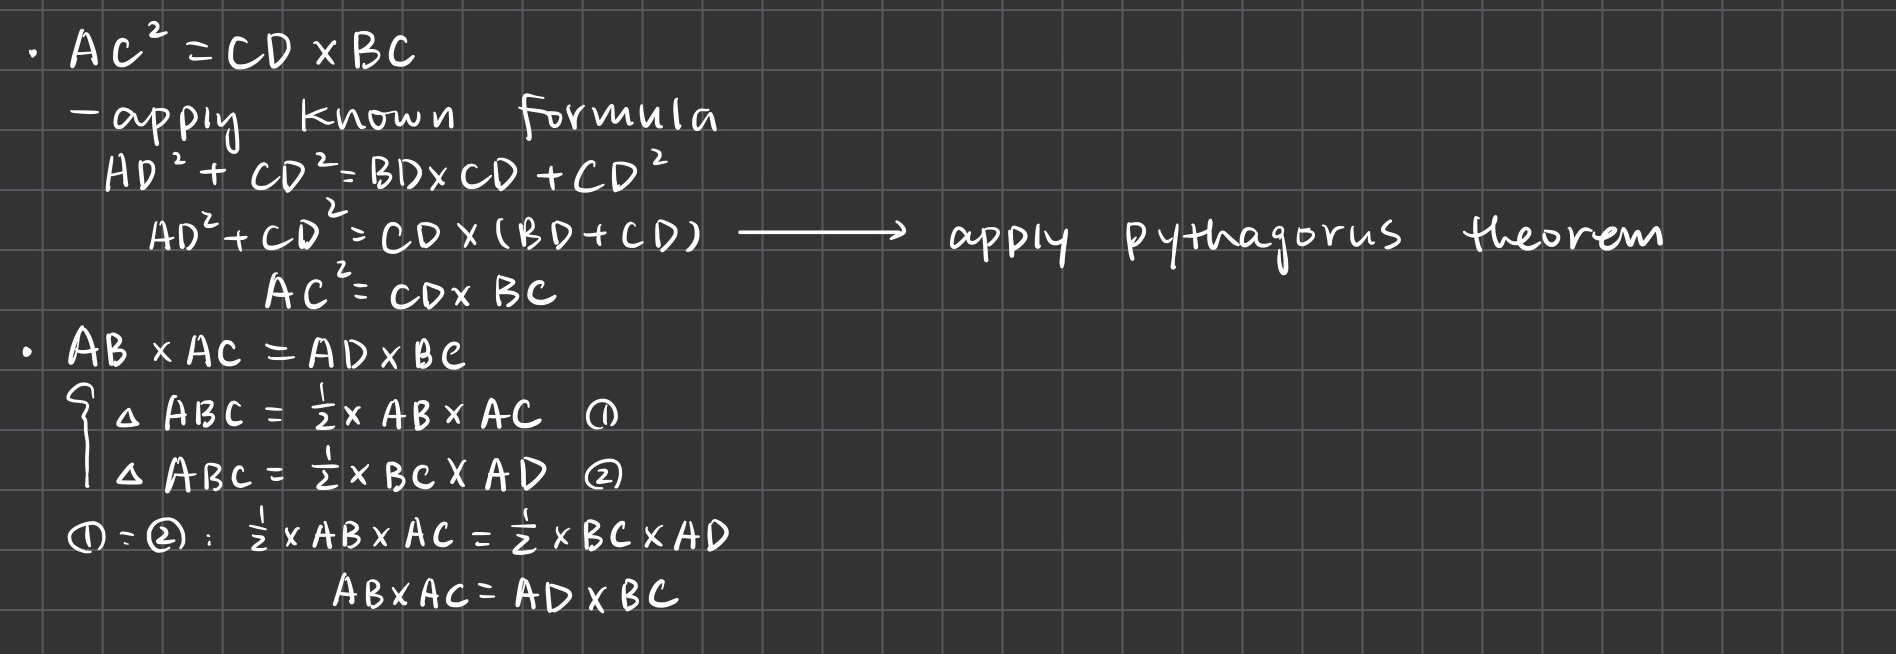 · AC² = CD × BC
- apply known formula
AD² + CD² = BD × CD + CD²
AD² + CD² = CD × (BD + CD) ⟶ apply pythagorus theorem
AC² = CD × BC
· AB × AC = AD × BC
{ △ ABC = 1/2 × AB × AC ①
△ ABC = 1/2 × BC × AD ②
① = ② : 1/2 × AB × AC = 1/2 × BC × AD
AB × AC = AD × BC